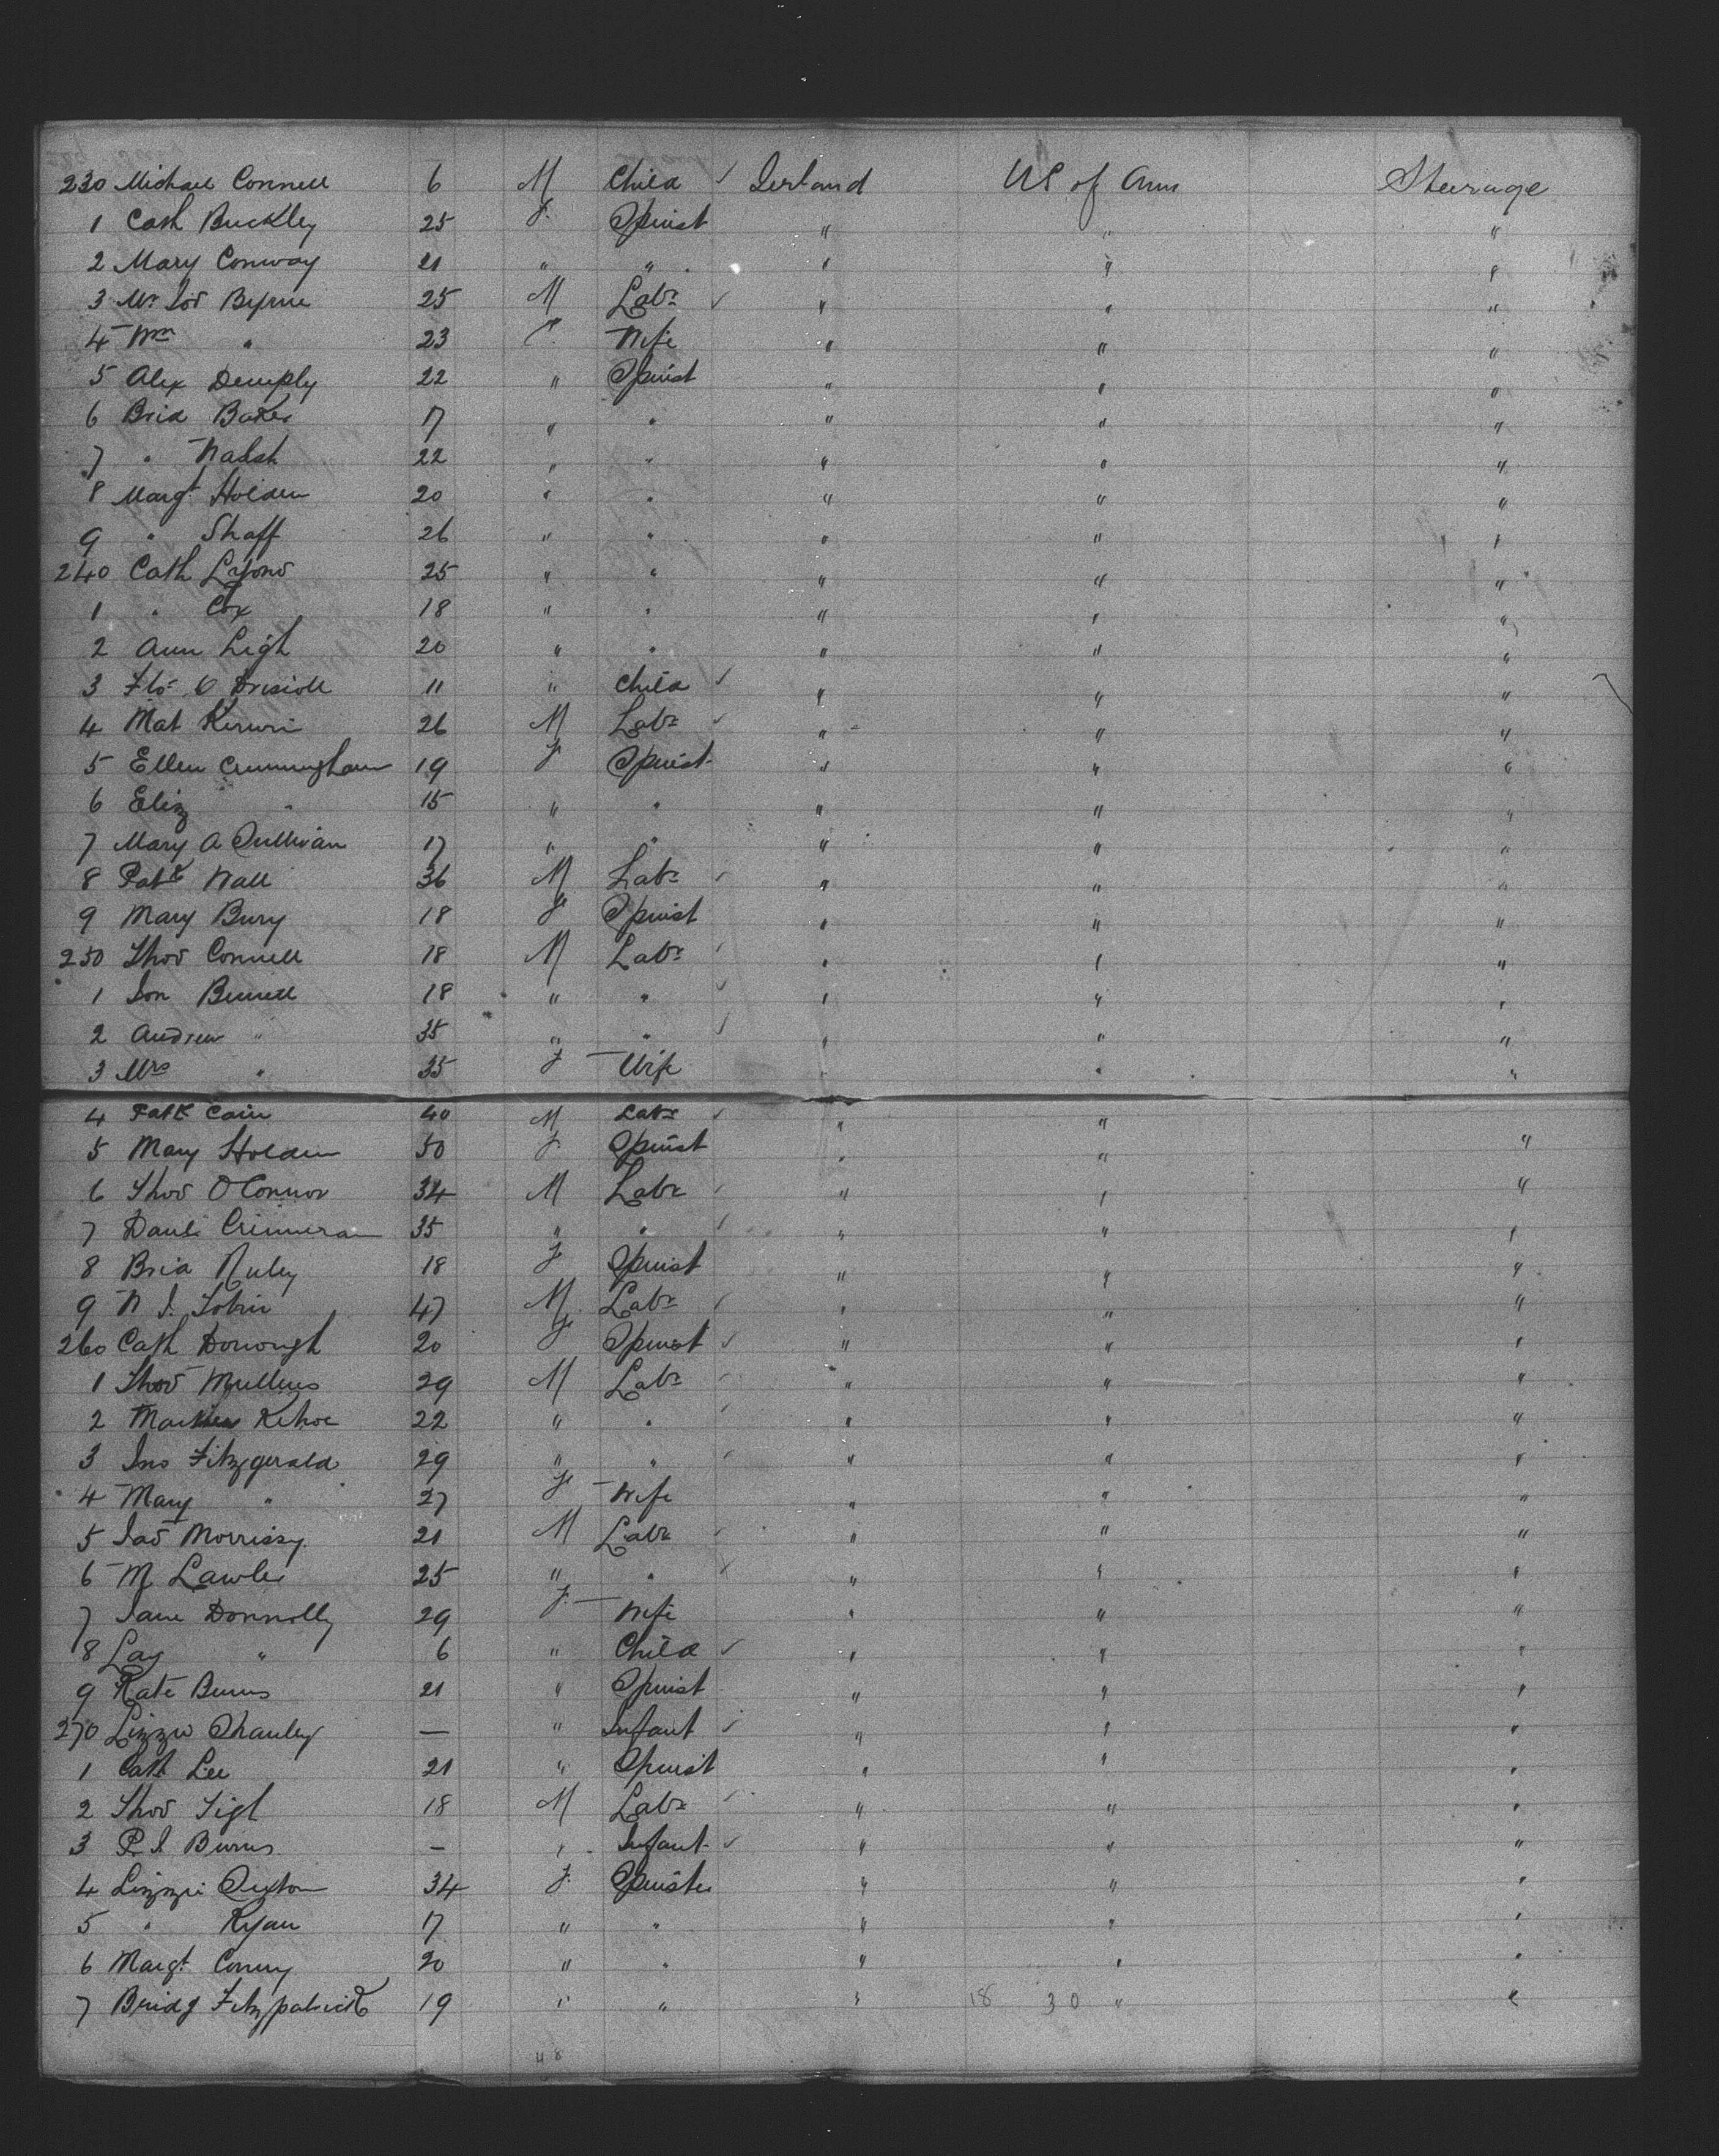 230 Michael Connell 6 M Child ✓ Ierland US of Am Steerage
1 Cath Buckley 25 F. Spinst " " "
2 Mary Conway 21 " " " " "
3 Mr Jos Byrne 25 M Labr ✓ " " "
4 " 23 F. Wife " " "
5 Alex Demply 22 " Spinst " " "
6 Brid Baker 17 " " " " "
7 " Walsh 22 " " " " "
8 Margt Holden 20 " " " " "
9 " Shaff 26 " " " " "
240 Cath Lyons 25 " " " " "
1 " Cox 18 " " " " "
2 Ann Ligh 20 " " " " "
3 Flo O Driscoll 11 " Child ✓ " " "
4 Mat Kerwin 26 M Labr ✓ " " "
5 Ellen Cunningham 19 F Spinst " " "
6 Eliz " 15 " " " " "
7 Mary A Sullivan 17 " " " " "
8 Patk Wall 36 M Labr ✓ " " "
9 Mary Bury 18 F Spinst " " "
250 Thos Connell 18 M Labr ✓ " " "
1 Jon Bennett 18 " " ✓ " " "
2 Andrew " 35 " " ✓ " " "
3 Mrs " 35 F Wife " " "
4 Patk Cain 40 M Labr ✓ " "
5 Mary Holden 50 F Spinst " " "
6 Thos O Connor 34 M Labr ✓ " " "
7 Danl 35 " " ✓ " " "
8 Brid 18 F Spinst " " "
9 N J. Tobin 47 M Labr ✓ " " "
260 Cath Donough 20 F Spinst ✓ " " "
1 Thos Mullens 29 M Labr ✓ " " "
2 Kehoe 22 " " ✓ " " "
3 Jno Fitzgerald 29 " " ✓ " " "
4 Mary " 27 F Wife " " "
5 Jas Morrissy 21 M Labr ✓ " " "
6 M Lawler 25 " " ✓ " " "
7 Jane Donnolly 29 F Wife " " "
8 " 6 " Child ✓ " " "
9 Kate Burns 21 " Spinst " " "
270 Lizzie Shanley — " Infant ✓ " " "
1 Cath Lee 21 " Spinst " " "
2 Thos 18 M Labr ✓ " " "
3 P. J Burns — " Infant ✓ " " "
4 Lizzie Sexton 34 F. Spinster " " "
5 " Ryan 17 " " " " "
6 Margt 20 " " " " "
7 Bridg Fitzpatrick 19 " " " 18 30 " "
48